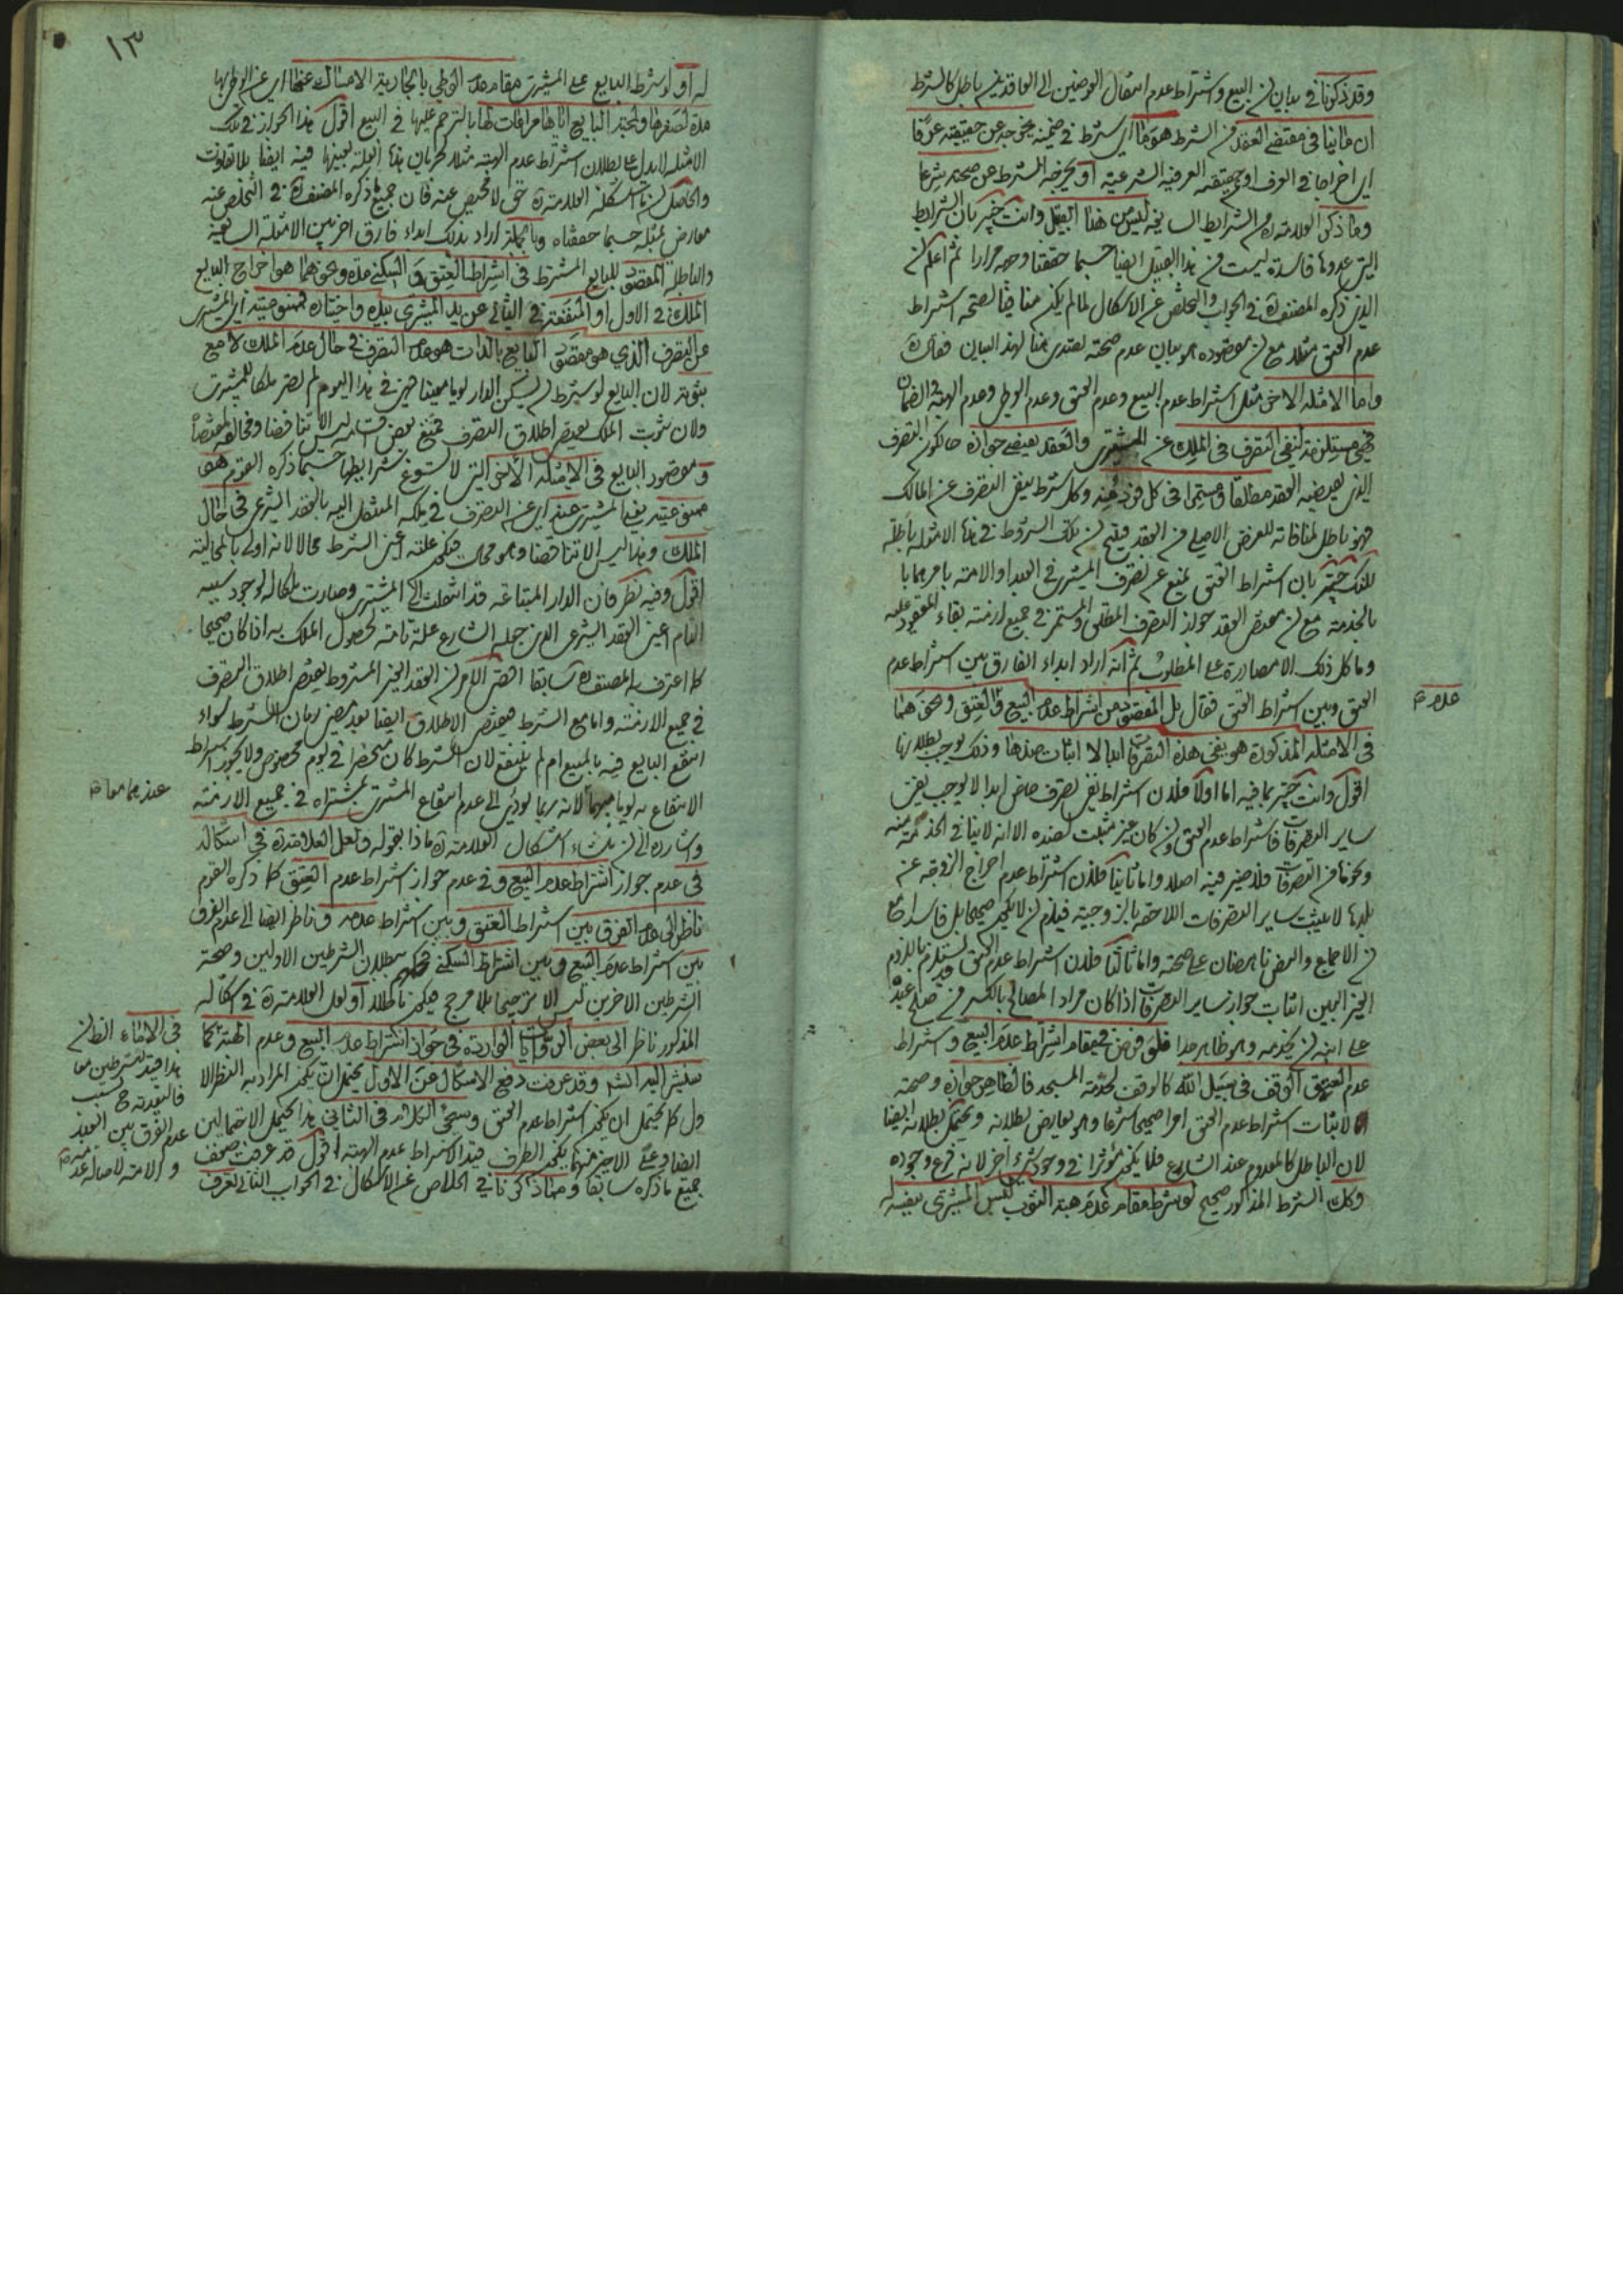 وقد ذكرنا في بداية ان البيع واشتراط عدم انتقال العوضين الى العاقدين باطل كالشرط
ان ما ينافي مقتضى العقد من الشرط هو ما اي شرط في ضمنه يخرجه عن حقيقته عرفا
اي اخراجا في العرف او حقيقته العرفية الشرعية او يخرجه الشرط عن صحته شرعا
وما ذكره العلامة ره من الشرايط السايغة ليس من هذا القبيل وانت خبير بان الشرايط
التي عدوها فاسدة ليست من هذا القبيل ايضا حسبما حققنا وجهه مرارا ثم اعلم ان
الذي ذكره المصنف ره في الجواب والتخلص عن الاشكال لما لم يكن منافيا لصحة اشتراط
عدم العتق مثلا مع ان مقصوده هو بيان عدم صحته تصدى هنا لهذا البيان فقال ره
واما الامثلة الاخرى مثل اشتراط عدم البيع وعدم العتق وعدم الوطي وعدم الهبة والضمان
فهي مستلزمة لنفي التصرف في الملك عن المشتري والعقد يقتضي جوازه حالكون التصرف
الذي يقتضيه العقد مطلقا ومستمرا في كل فرد منه وكل شرط ينفي التصرف عن المالك
فهو باطل لمنافاته للغرض الاصلي من العقد فينتج ان تلك الشروط في هذه الامثلة باطلة
لكنك خبير بان اشتراط العتق يمنع عن تصرف المشتري في العبد او الامة بامرهما با
بالخدمة مع ان مقتضى العقد جواز التصرف المطلق والمستمر في جميع ازمنة بقاء المعقود عليه
وما كل ذلك الا مصادرة على المطلوب ثم انه اراد ابداء الفارق بين اشتراط عدم
العتق وبين اشتراط العتق فقال بل المقصود من اشتراط عدم البيع والعتق ونحوهما
في الامثلة المذكورة هو نفي هذه التصرفات ابدا لا اثبات ضدها وذلك يوجب بطلانها
اقول وانت خبير بما فيه اما اولا فلان اشتراط نفي تصرف خاص ابدا لا يوجب نفي
ساير التصرفات فاشتراط عدم العتق وان كان غير مثبت لضده الا انه لا ينافي الخدمة منه
ونحوها من التصرفات فلا ضير فيه اصلا واما ثانيا فلان اشتراط عدم اخراج الزوجة عن
بلدها لا يثبت ساير التصرفات اللاحقة بالزوجية فيلزم ان لا يكون صحيحا بل فاسدا مع
ان الاجماع والنص ناهضان على صحته واما ثالثا فلان اشتراط عدم العتق قد يستلزم باللزوم
الغير البين اثبات جواز ساير التصرفات اذا كان مراد المصالح بالكسر من صلح عبده
على ابنه ان يخدمه وهو ظاهر جدا فلو فرض في مقام اشتراط عدم البيع واشتراط
عدم العتق الوقف في سبيل الله كالوقف لخدمة المسجد فالظاهر جوازه وصحته
لاثبات اشتراط عدم العتق امرا صحيحا شرعا وهو يعارض بطلانه ويحتمل بطلانه ايضا
لان الباطل كالمعدوم عند الشارع فلا يكون مؤثرا في وجود شيء اخر لانه فرع وجوده
وكذلك الشرط المذكور صحيح لو شرط مقام عدم هبة الثوب لبس المشتري بنفسه
علامه
١٣
له او لو شرط البايع على المشتري مقام عدم الوطي بالجارية الامساك عنها اي عن الوطي بها
مدة لصغرها
الامثلة لا يدل على بطلان اشتراط عدم الهبة مثلا لجريان هذه العلة بعينها فيه ايضا بلا تفاوت
والحاصل ان ما استشكله العلامة ره حق لا محيص عنه فان جميع ما ذكره المصنف ره في التخلص عنه
معارض بمثله حسبما حققناه وبالجملة اراد بذلك ابداء فارق اخر بين الامثلة السايغة
والباطلة المقصود للبايع المشترط في اشتراط العتق والسكنى مدة ونحوهما هو اخراج البايع
الملك في الاول او المنفعة في الثاني عن يد المشتري بيده واختياره ممنوعيته اي المشتري
عن التصرف الذي هو مقصود البايع بالذات هو عدم التصرف في حال عدم الملك لا مع
ثبوته لان البايع لو شرط ان يسكن الدار يوما معينا فهي في هذا اليوم لم تصر ملكا للمشتري
ولان ثبوت الملك يقتضي اطلاق التصرف فمنع بعض اقسامه ليس الا تناقضا ومخالفة لمقتضاه
ومقصود البايع في الامثلة الاخرى التي لا تسوغ شرايطها حسبما ذكره القوم هو
ممنوعيته يعني المشتري عنه اي عن التصرف في ملكه المنتقل اليه بالعقد الشرعي في حال
الملك وهذا ليس الا تناقضا وهو محال فيكون علته اعني الشرط محالا لانه اولى بالمحالية
اقول وفيه نظر فان الدار المبتاعة قد انتقلت الى المشتري وصارت ملكا له لوجود سببه
التام اعني العقد الشرعي الذي جعله الشارع علة تامة لحصول الملك به اذا كان صحيحا
كما اعترف به المصنف ره سابقا اقصى الامر ان العقد الغير المشروط يقتضي اطلاق التصرف
في جميع الازمنة واما مع الشرط فيقتضي الاطلاق ايضا بعد مضي زمان الشرط سواء
انتفع البايع فيه بالمبيع ام لم ينتفع لان الشرط كان منحصرا في يوم مخصوص ولا يجوز اشتراط
الانتفاع به يوما مبهما لانه ربما يؤدي الى عدم انتفاع المشتري بمشتراه في جميع الازمنة
واشار ره الى ان منشاء اشكال العلامة ره ماذا بقوله ولعل العلامة ره في اشكاله
في عدم جواز اشتراط عدم البيع وفي عدم جواز اشتراط عدم العتق كما ذكره القوم
ناظر الى عدم الفرق بين اشتراط العتق وبين اشتراط عدمه وناظر ايضا الى عدم الفرق
بين اشتراط عدم البيع وبين اشتراط السكنى فحكمهم ببطلان الشرطين الاولين وصحة
الشرطين الاخرين ليس الا ترجيحا بلا مرجح فيكون باطلا او لعل العلامة ره في اشكاله
المذكور ناظر الى بعض الروايات الواردة في جواز اشتراط عدم البيع وعدم الهبة كما
سنشير اليه انشم وقد عرفت دفع الاشكال عن الاول يحتمل ان يكون المراد به النظر الا
ول كما يحتمل ان يكون اشتراط عدم العتق وسيجئ الكلام في الثاني هذا يحتمل الاحتمالين
ايضا وعلى الاخير منهما يكون الظرف قيد الاشتراط عدم الهبة اقول قد عرفت ضعف
جميع ما ذكره سابقا ومما ذكرنا في الخلاص عن الاشكال في الجواب الثاني تعرف
عندهما معا
في الاماء الظان
هذا قيد للشرطين معا
عدم الفرق بين العبد
والامة